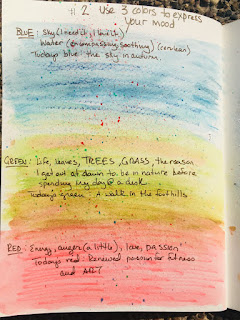 #2 Use 3 colors to express
your mood
BLUE: sky (I need it, I
Water (encompassing, soothing) (cerulean)
Today's blue: the sky in autumn.
GREEN: Life, leaves, TREES, GRASS, the reason
I get out at dawn to be in nature before
spending my day @ a desk.
Today's green: A walk in the foothills
RED: Energy, anger (a little), love, PASSION
Today's red: Renewed passion for fitness
and Art!